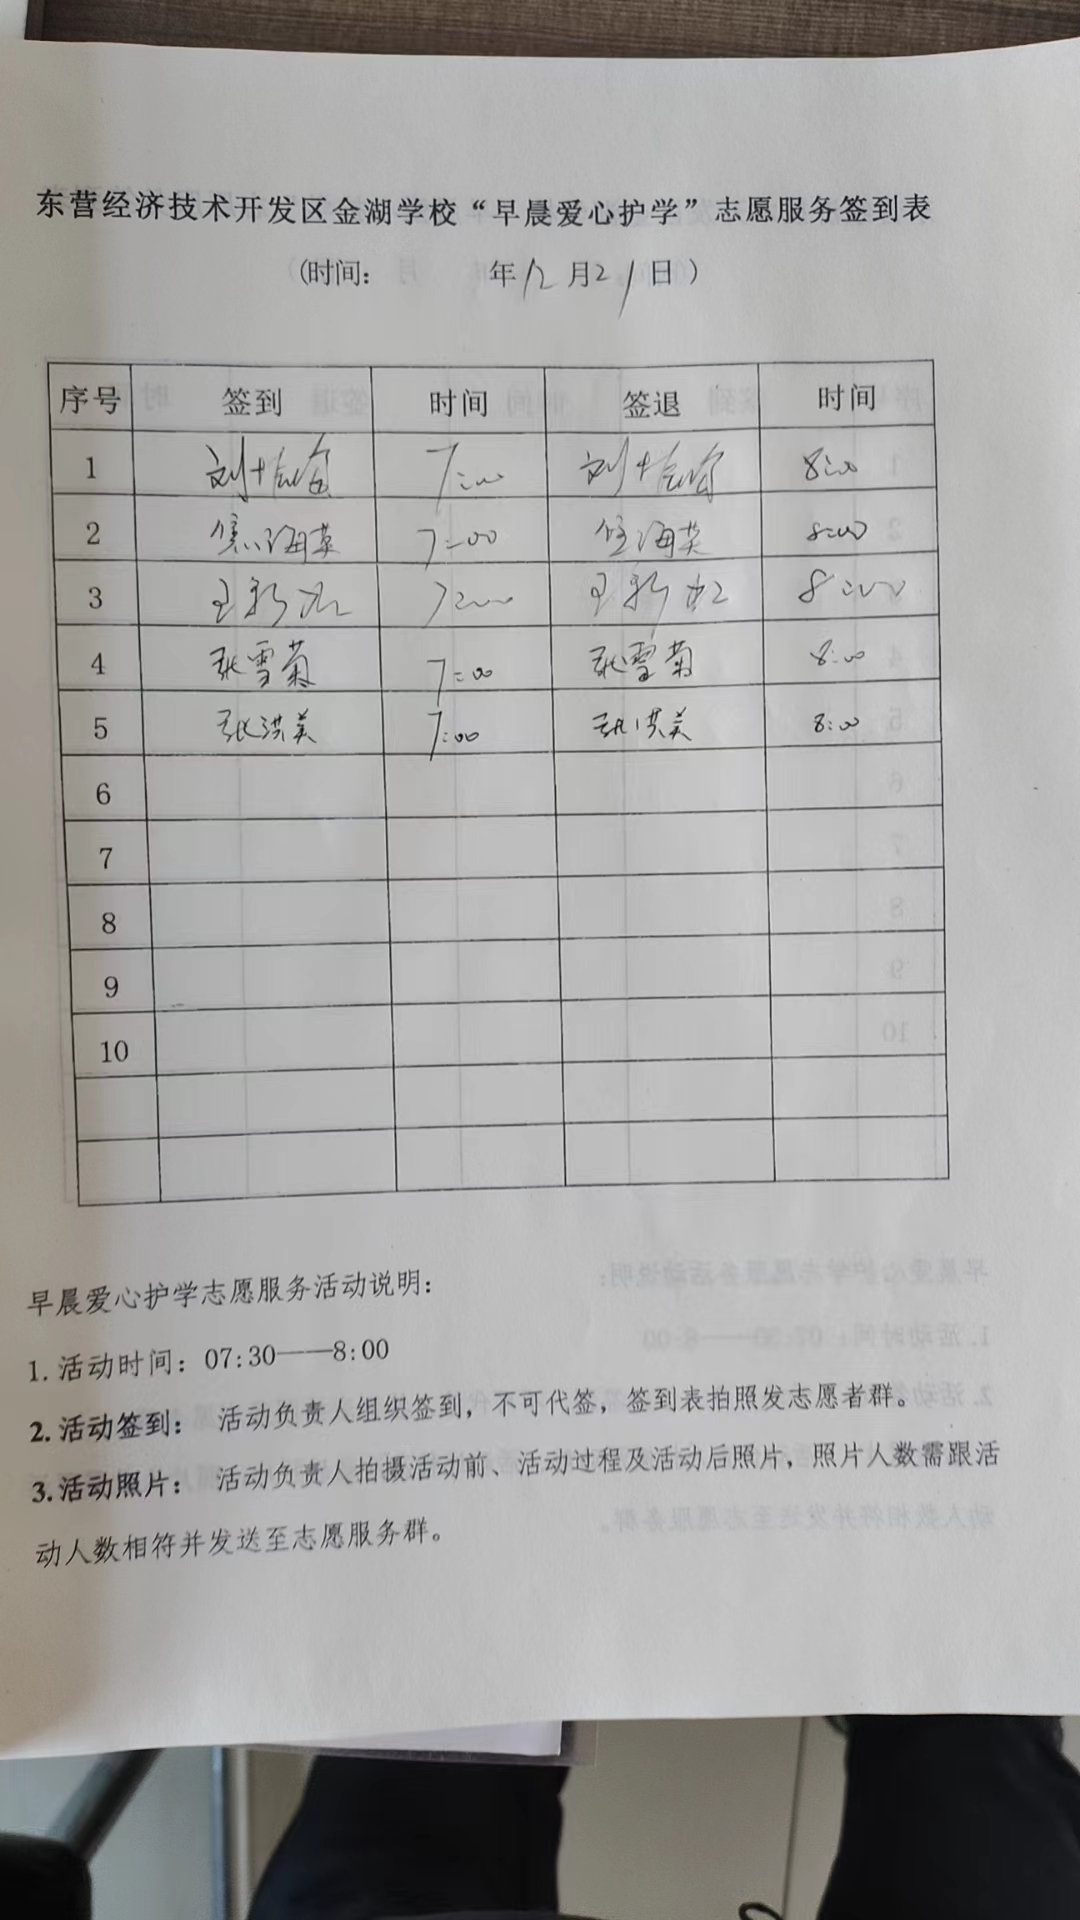 东营经济技术开发区金湖学校“早晨爱心护学”志愿服务签到表
(时间: 年12月21日)
序号 签到 时间 签退 时间
1 7:00 8:00
2 焦海英 7:00 焦海英 8:00
3 王新虹 7:00 王新虹 8:00
4 张雪菊 7:00 张雪菊 8:00
5 张洪美 7:00 张洪美 8:00
6
7
8
9
10
早晨爱心护学志愿服务活动说明:
1. 活动时间: 07:30——8:00
2. 活动签到: 活动负责人组织签到,不可代签,签到表拍照发志愿者群。
3. 活动照片: 活动负责人拍摄活动前、活动过程及活动后照片,照片人数需跟活
动人数相符并发送至志愿服务群。